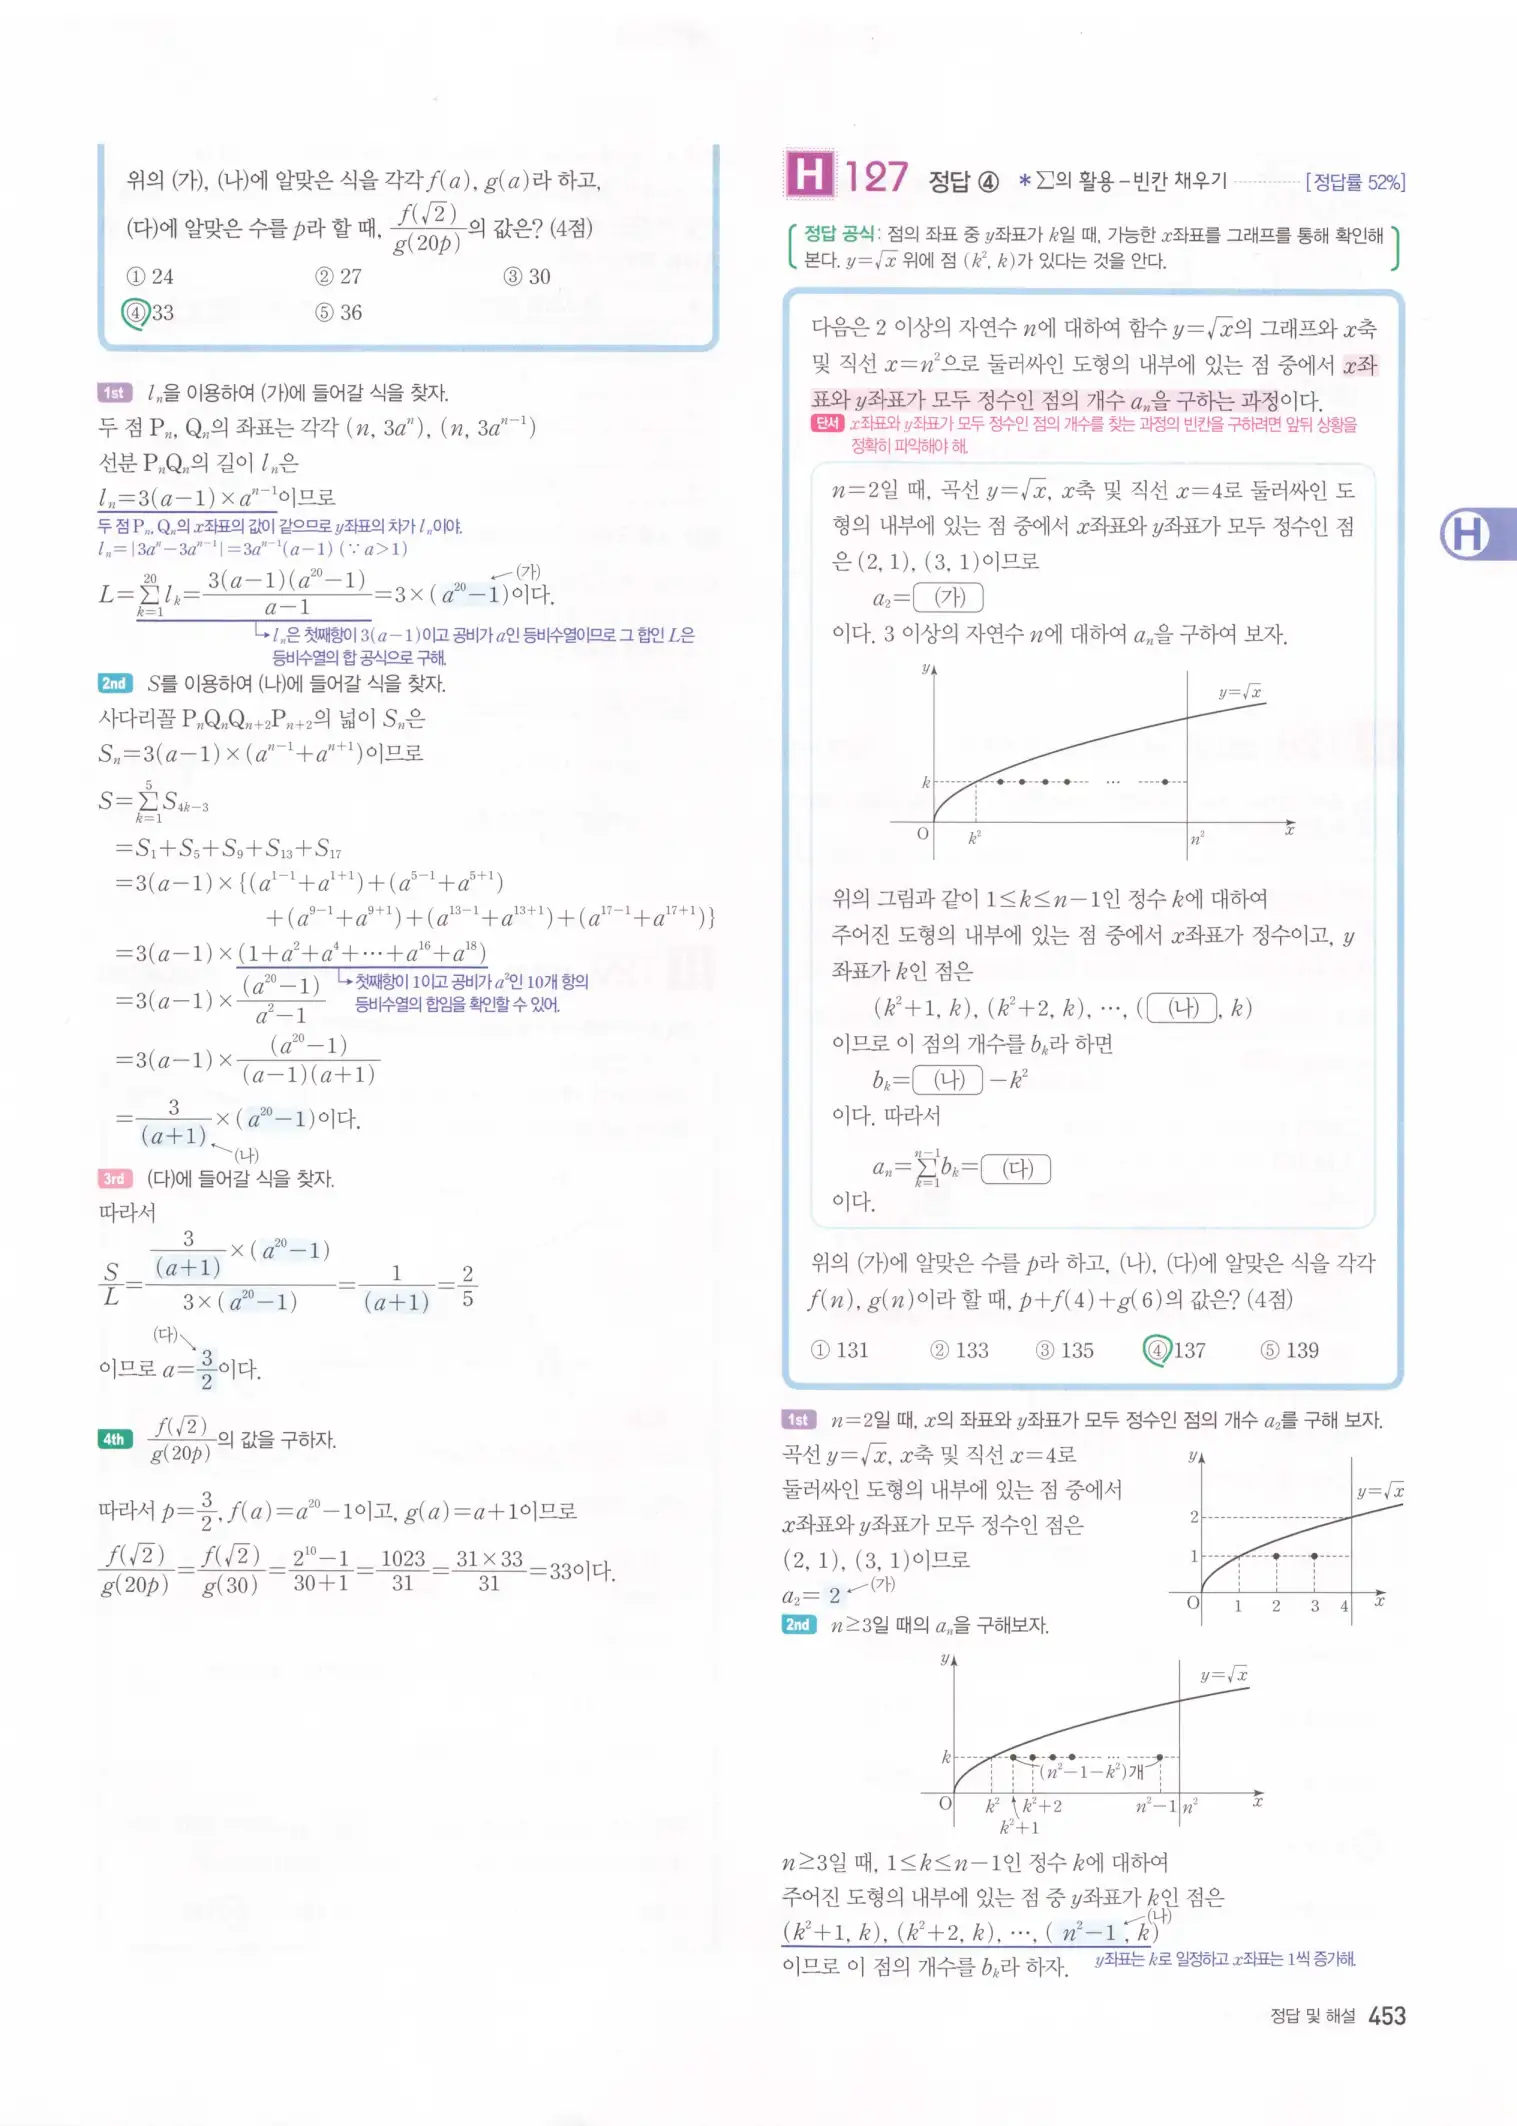 위의 (가), (나)에 알맞은 식을 각각 f(a), g(a)라 하고,
(다)에 알맞은 수를 p라 할 때, f(√2)/g(20p)의 값은? (4점)
① 24 ② 27 ③ 30
④ 33 ⑤ 36
1st lₙ을 이용하여 (가)에 들어갈 식을 찾자.
두 점 Pₙ, Qₙ의 좌표는 각각 (n, 3aⁿ), (n, 3aⁿ⁻¹)
선분 PₙQₙ의 길이 lₙ은
lₙ=3(a−1)×aⁿ⁻¹이므로
두 점 Pₙ, Qₙ의 x좌표의 값이 같으므로 y좌표의 차가 lₙ이야.
lₙ=|3aⁿ−3aⁿ⁻¹|=3aⁿ⁻¹(a−1) (∵ a>1)
L=∑_{k=1}^{20} l_k=3(a−1)(a²⁰−1)/(a−1)=3×(a²⁰−1)이다.
(가)
lₙ은 첫째항이 3(a−1)이고 공비가 a인 등비수열이므로 그 합인 L은
등비수열의 합 공식으로 구해.
2nd S를 이용하여 (나)에 들어갈 식을 찾자.
사다리꼴 PₙQₙQₙ₊₂Pₙ₊₂의 넓이 Sₙ은
Sₙ=3(a−1)×(aⁿ⁻¹+aⁿ⁺¹)이므로
S=∑_{k=1}^{5} S_{4k−3}
=S₁+S₅+S₉+S₁₃+S₁₇
=3(a−1)×{(a¹⁻¹+a¹⁺¹)+(a⁵⁻¹+a⁵⁺¹)
+(a⁹⁻¹+a⁹⁺¹)+(a¹³⁻¹+a¹³⁺¹)+(a¹⁷⁻¹+a¹⁷⁺¹)}
=3(a−1)×(1+a²+a⁴+⋯+a¹⁶+a¹⁸)
=3(a−1)×(a²⁰−1)/(a²−1)
첫째항이 1이고 공비가 a²인 10개 항의
등비수열의 합임을 확인할 수 있어.
=3(a−1)×(a²⁰−1)/((a−1)(a+1))
=3/(a+1)×(a²⁰−1)이다.
(나)
3rd (다)에 들어갈 식을 찾자.
따라서
S/L={3/(a+1)×(a²⁰−1)}/{3×(a²⁰−1)}=1/(a+1)=2/5
(다)
이므로 a=3/2이다.
4th f(√2)/g(20p)의 값을 구하자.
따라서 p=3/2, f(a)=a²⁰−1이고, g(a)=a+1이므로
f(√2)/g(20p)=f(√2)/g(30)=(2¹⁰−1)/(30+1)=1023/31=(31×33)/31=33이다.
H 127 정답 ④ *∑의 활용−빈칸 채우기 [정답률 52%]
정답 공식: 점의 좌표 중 y좌표가 k일 때, 가능한 x좌표를 그래프를 통해 확인해
본다. y=√x 위에 점 (k², k)가 있다는 것을 안다.
다음은 2 이상의 자연수 n에 대하여 함수 y=√x의 그래프와 x축
및 직선 x=n²으로 둘러싸인 도형의 내부에 있는 점 중에서 x좌
표와 y좌표가 모두 정수인 점의 개수 aₙ을 구하는 과정이다.
단서 x좌표와 y좌표가 모두 정수인 점의 개수를 찾는 과정의 빈칸을 구하려면 앞뒤 상황을
정확히 파악해야 해.
n=2일 때, 곡선 y=√x, x축 및 직선 x=4로 둘러싸인 도
형의 내부에 있는 점 중에서 x좌표와 y좌표가 모두 정수인 점
은 (2, 1), (3, 1)이므로
a₂=(가)
이다. 3 이상의 자연수 n에 대하여 aₙ을 구하여 보자.
y
y=√x
k
⋯
O k² n² x
위의 그림과 같이 1≤k≤n−1인 정수 k에 대하여
주어진 도형의 내부에 있는 점 중에서 x좌표가 정수이고, y
좌표가 k인 점은
(k²+1, k), (k²+2, k), ⋯, ((나), k)
이므로 이 점의 개수를 b_k라 하면
b_k=(나)−k²
이다. 따라서
aₙ=∑_{k=1}^{n−1} b_k=(다)
이다.
위의 (가)에 알맞은 수를 p라 하고, (나), (다)에 알맞은 식을 각각
f(n), g(n)이라 할 때, p+f(4)+g(6)의 값은? (4점)
① 131 ② 133 ③ 135 ④ 137 ⑤ 139
1st n=2일 때, x의 좌표와 y좌표가 모두 정수인 점의 개수 a₂를 구해 보자.
곡선 y=√x, x축 및 직선 x=4로
둘러싸인 도형의 내부에 있는 점 중에서
x좌표와 y좌표가 모두 정수인 점은
(2, 1), (3, 1)이므로
a₂= 2 (가)
y
y=√x
2
1
O 1 2 3 4 x
2nd n≥3일 때의 aₙ을 구해보자.
y
y=√x
k
⋯
(n²−1−k²)개
O k² k²+2 n²−1 n² x
k²+1
n≥3일 때, 1≤k≤n−1인 정수 k에 대하여
주어진 도형의 내부에 있는 점 중 y좌표가 k인 점은
(k²+1, k), (k²+2, k), ⋯, ( n²−1 , k)
(나)
이므로 이 점의 개수를 b_k라 하자.
y좌표는 k로 일정하고 x좌표는 1씩 증가해.
H
정답 및 해설 453